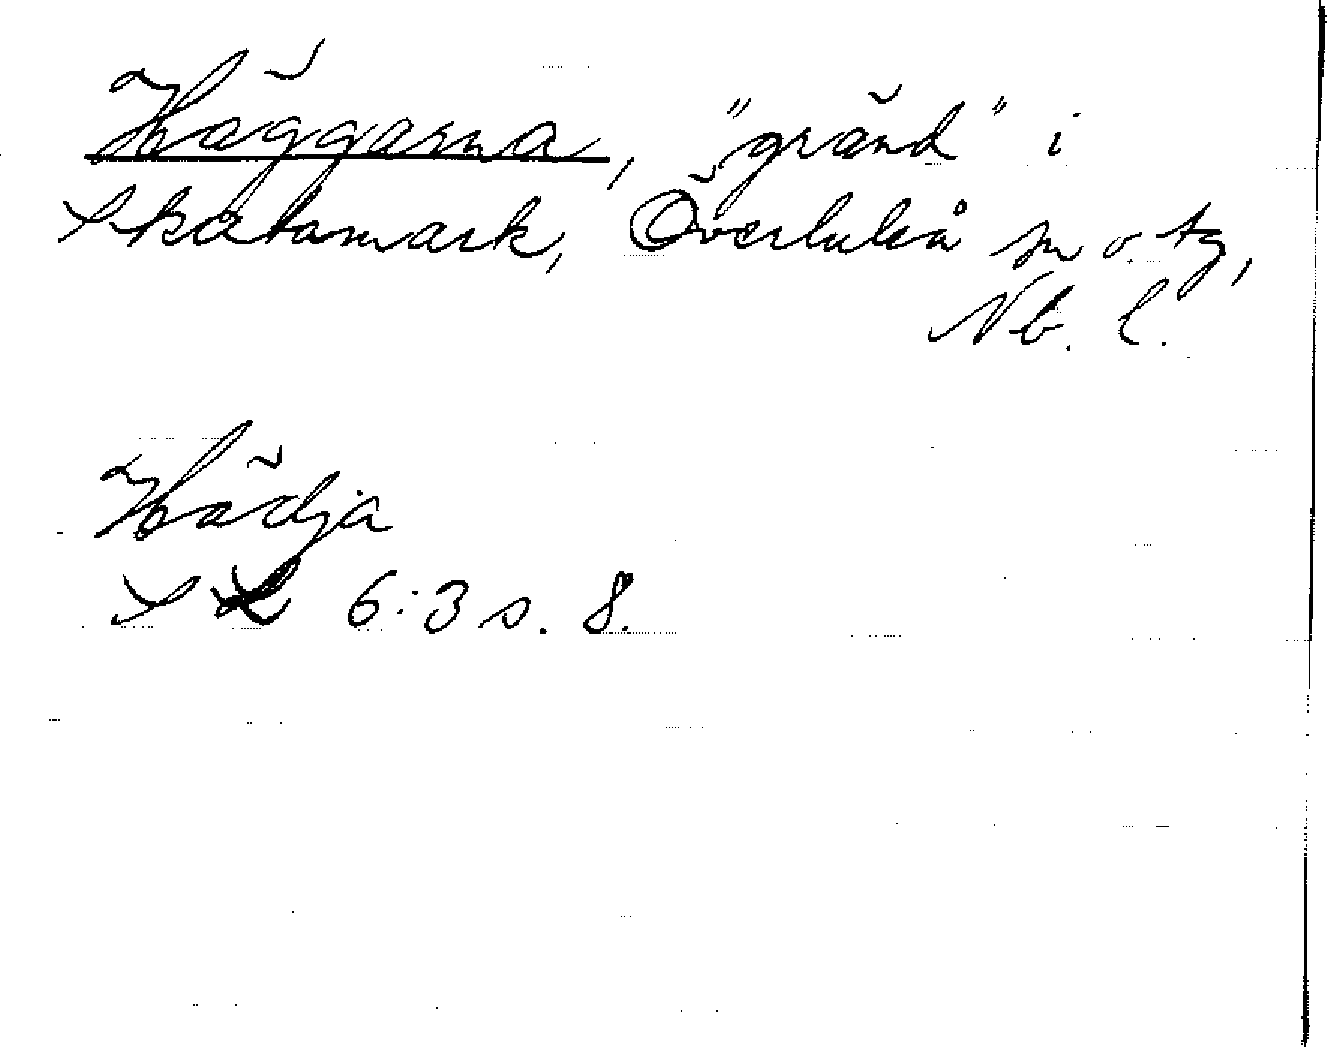 Häggarna, "gränd" i
Skatamark, Överluleå sn o. tg,
Nb. l.
Hädja
SL 6:3 s. 8.